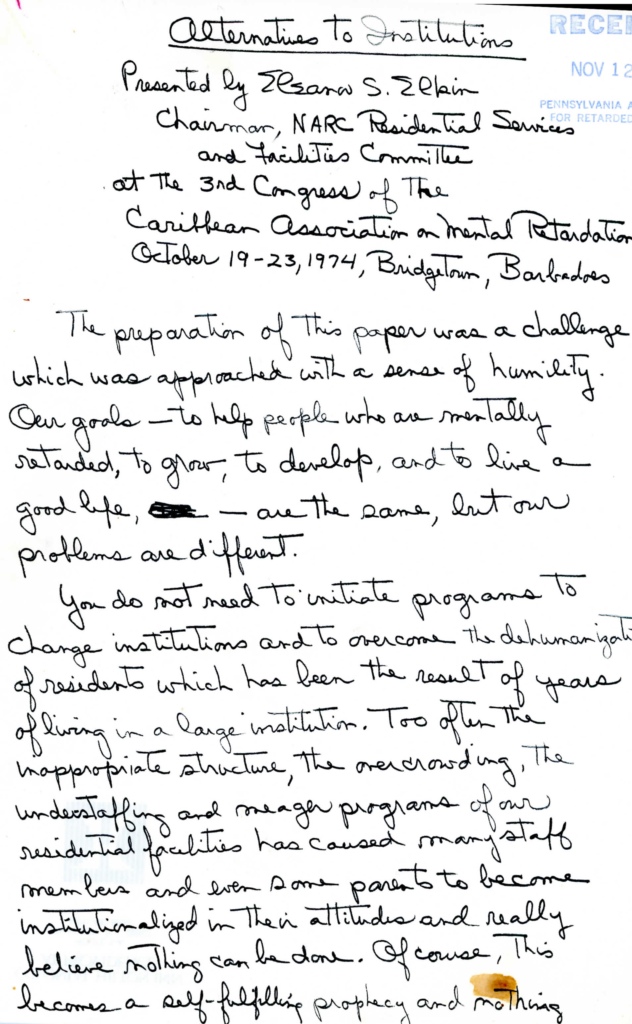 Alternatives to Institutions
RECEI
NOV 12
PENNSYLVANIA A
FOR RETARDED
Presented by Eleanor S. Elkin
Chairman, NARC Residential Services
and Facilities Committee
at the 3rd Congress of the
Caribbean Association on Mental Retardation
October 19-23, 1974, Bridgetown, Barbadoes
The preparation of this paper was a challenge
which was approached with a sense of humility.
Our goals — to help people who are mentally
retarded, to grow, to develop, and to live a
good life, — are the same, but our
problems are different.
You do not need to initiate programs to
change institutions and to overcome the dehumanizati
of residents which has been the result of years
of living in a large institution. Too often the
inappropriate structure, the overcrowding, the
understaffing and meager programs of our
residential facilities has caused many staff
members and even some parents to become
institutionalized in their attitudes and really
believe nothing can be done. Of course, this
becomes a self-fulfilling prophecy and nothing